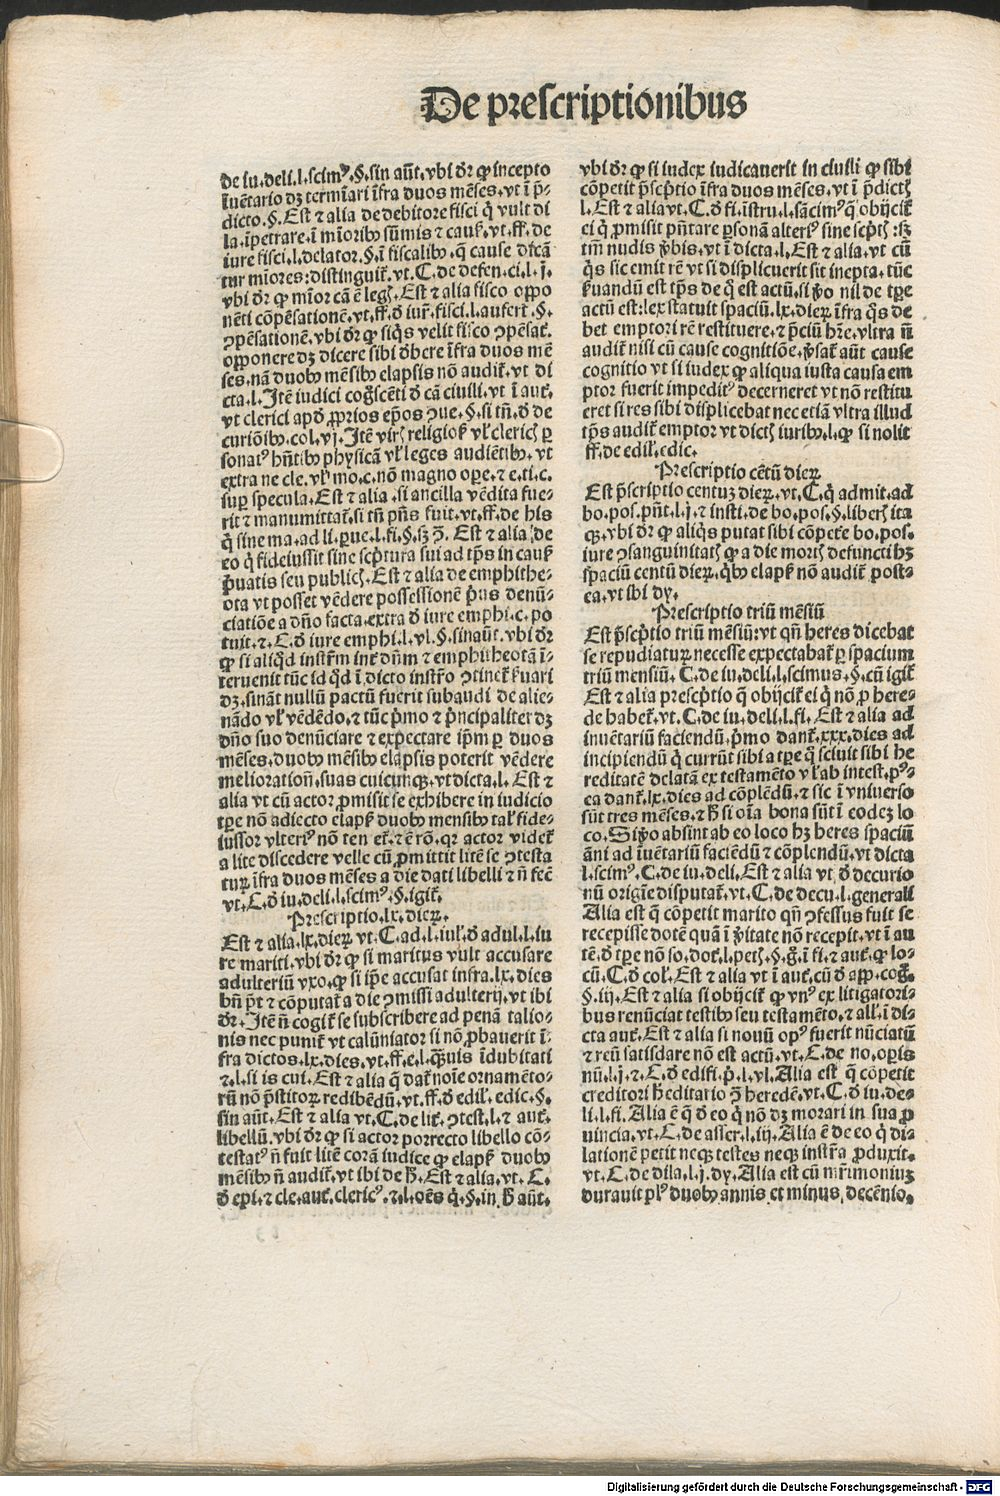 De prescriptionibus
de iu.deli.l.scimꝰ.§.sin aūt.vbi dr̄ ꝙ incepto
īuētario dꝫ termīari īfra duos mēses.vt ī p̄-
dicto.§.Est ⁊ alia de debitore fisci q̇ vult di
la.īpetrare.ī mīoribꝰ sūmis ⁊ cauẜ.vt.ff.de
iure fisci.l.delator.§.ī fiscalibꝰ.q̄ cause dicā
tur mīores:distinguit̄.vt.C.de defen.ci.l.j.
vbi dr̄ ꝙ mīor cā ē legꝭ.Est ⁊ alia fisco oppo
nēti cōpēsationē.vt.ff.đ iur̄.fisci.l.aufert̄.§.
ꝯpēsationē.vbi dr̄ ꝙ siq̇s velit fisco ꝯpēsar̄.
opponere dꝫ dicere sibi đbere īfra duos mē
ses.nā duobꝰ mēsibꝰ elapsis nō audit̄.vt di
cta.l.Itē iudici cogscēti đ cā ciuili.vt ī aut̄.
vt clerici apđ ꝓprios ep̄os ꝯue.§.si tn̄.đ de
curiōibꝰ.col.vj.Itē virꝭ religioẜ vł clericꝭ ꝑ
sonatꝰ hn̄tibꝰ physicā vł leges audiētibꝰ.vt
extra ne cle.vł mo.c.nō magno oꝑe.⁊ e.ti.c.
suꝑ specula.Est ⁊ alia .si ancilla vēdita fue-
rit ⁊ manumittat̄.si tn̄ pn̄s fuit.vt.ff.de his
q̇ sine ma.ad li.ꝑue.l.fi.§.sꝫ ꝫ. Est ⁊ alia de
eo q̇ fideiussit sine scp̄tura sui ad tp̄s in cauẜ
p̄uatis seu publicꝭ.Est ⁊ alia de emphithe-
ota vt posset vēdere possessionē p̄us denū-
ciatiōe a dn̄o facta.extra đ iure emphi.c.po
tuit.⁊.C.đ iure emphi.l.vl.§.sinaūt.vbi dr̄
ꝙ si aliq̇d instrm̄ int̄ dn̄m ⁊ emphitheotā ī-
teruenit tūc id q̇d ī dicto instrō ꝯtinet̄ ẜuari
dꝫ.sināt nullū pactū fuerit subaudi de alie-
nādo vł vēdēdo.⁊ tūc p̄mo ⁊ p̄ncipaliter dꝫ
dn̄o suo denūciare ⁊ expectare ip̄m ꝑ duos
mēses.duobꝰ mēsibꝰ elapsis poterit vēdere
meliorationē.suas cuicunqꝫ.vt dicta.l. Est ⁊
alia vt cū actor ꝓmisit se exhibere in iudicio
tꝑe nō adiecto elapẜ duobꝰ mensibꝰ tał fide-
iussor vlteriꝰ nō ten et̄.⁊ ē rō.qꝛ actor videt̄
a lite discedere velle cū ꝓmittit litē se ꝯtesta
tuꝝ īfra duos mēses a die dati libelli ⁊ n̄ fec̄
vt.C.đ iu.deli.l.scimꝰ.§.igit̄.
Prescriptio.lx.dieꝝ.
Est ⁊ alia.lx.dieꝝ vt.C.ad.l.iuł.đ adul.l.iu
re mariti.vbi dr̄ ꝙ si maritus vult accusare
adulteriū vxo.ꝙ si ip̄e accusat infra.lx.dies
bn̄ p̄t ⁊ cōputat̄ a die ꝯmissi adulterij.vt ibi
dr̄.Itē n̄ cogit̄ se subscribere ad penā talio-
nis nec punit̄ vt calūniator si nō ꝓbauerit ī-
fra dictos.lx.dies.vt.ff.e.l.q̄uis īdubitati
⁊.l.si is cui.Est ⁊ alia q̄ dat̄ noīe ornamēto-
rū nō p̄stitoꝝ redibēdū.vt.ff.đ edił.edic.§.
sin aūt.Est ⁊ alia vt.C.de lit̄.ꝯtest.l.⁊ aut̄.
libellū.vbi dr̄ ꝙ si actor porrecto libello cō-
testatꝰ n̄ fuit litē corā iudice ꝙ elapẜ duobꝰ
mēsibꝰ n̄ audit̄.vt ibi de h̄.Est ⁊ alia.vt. C.
đ epi.⁊ cle.aut̄.clericꝰ.⁊.l.oēs q̇.§.in h̄ aūt.
vbi dr̄ ꝙ si iudex iudicauerit in ciuili ꝙ sibi
cōpetit p̄scp̄tio īfra duos mēses.vt ī p̄dictꝭ
l.Est ⁊ alia vt.C.đ fi.īstru.l.sācimꝰ q̄ obijcit̄
ei q̇ ꝓmisit pn̄tare ꝑsonā alteriꝰ sine scp̄tꝭ:sꝫ
tm̄ nudis v̄bis.vt ī dicta.l.Est ⁊ alia.vt cū
q̇s sic emit rē vt si displicuerit sit inepta.tūc
ẜuandū est tp̄s de q̇ est actū.si v̄o nil de tꝑe
actū est:lex statuit spaciū.lx.dieꝝ īfra q̇s de
bet emptori rē restituere.⁊ p̄ciū hr̄e.vltra n̄
audit̄ nisi cū cause cognitiōe.v̄sat̄ aūt cause
cognitio vt si iudex ꝙ aliqua iusta causa em
ptor fuerit impeditꝰ decerneret vt nō restitu
eret si res sibi displicebat nec etiā vltra illud
tp̄s audit̄ emptor vt dictꝭ iuribꝰ.l.ꝙ si nolit
ff.de edił.edic.
Prescriptio cētū dieꝝ
Est p̄scriptio centuꝫ dieꝝ.vt.C.q̇ admit.ad
bo.pos.pn̄t.l.j.⁊ insti.de bo.pos.§.liberꝭ ita
qꝫ.vbi dr̄ ꝙ aliq̇s putat sibi cōpetēre bo.pos.
iure ꝯsanguinitatꝭ ꝙ a die mortꝭ defuncti hꝫ
spaciū centū dieꝝ.q̇bꝰ elapẜ nō audit̄ post-
ea.vt ibi dꝫ.
Prescriptio triū mēsiū
Est p̄scp̄tio triū mēsiū:vt qn̄ heres dicebat
se repudiatuꝝ necesse expectabat̄ ꝑ spacium
triū mensiū. C.de iu.deli.l.scimus.§.cū igit̄
Est ⁊ alia prescp̄tio q̄ obijcit̄ ei q̇ nō ꝓ here-
de habet̄.vt.C.de iu.deli.l.fi. Est ⁊ alia ad
inuētariū faciendū.p̄mo dant̄.xxx.dies ad
incipiendū q̇ currūt sibi a tꝑe q̇ sciuit sibi he
reditatē delatā ex testamēto vł ab intest.pꝰ-
ea dant̄.lx.dies ad cōplēdū.⁊ sic ī vniuerso
sūt tres mēses.⁊ h̄ si oīa bona sūt ī eodeꝫ lo
co.Si v̄o absint ab eo loco hꝫ heres spaciū
āni ad īuētariū faciēdū ⁊ cōplendū.vt dicta
.l.scimꝰ.C.de iu.deli.Est ⁊ alia vt đ decurio
nū origīe disputat̄.vt.C.de decu.l.generali
Alia est q̄ cōpetit marito qn̄ ꝯfessus fuit se
recepisse dotē quā ī v̄itate nō recepit.vt ī au
tē.đ tꝑe nō so.dot̄.l.petꝭ.§.q̄ ī fi.⁊ aut̄.ꝙ lo-
cū.C.đ coł.Est ⁊ alia vt ī aut̄.cū đ app.cog.
§.iij.Est ⁊ alia si obijcit̄ ꝙ vnꝰ ex litigatori-
bus renūciat testibꝰ seu testamēto.⁊ ałl.ī di-
cta aut̄.Est ⁊ alia si nouū opꝰ fuerit nūciatū
⁊ reū satisdare nō est actū.vt.C.de no.oꝑis
nū.l.j.⁊.C.đ edifi.p̄.l.vl.Alia est q̄ cōpetit
creditori hereditario ꝯ heredē.vt.C.đ iu.de-
li.l.fi.Alia ē q̄ đ eo q̇ nō dꝫ morari in sua ꝓ
uincia.vt.C.de asser.l.iij.Alia ē de eo q̇ di-
lationē petit neqꝫ testes neqꝫ instr̄a ꝓduxit.
vt.C.de dila.l.j.dꝫ.Alia est cū mr̄imoniuꝫ
durauit plꝰ duobꝰ annis et minus decēnio.
Digitalisierung gefördert durch die Deutsche Forschungsgemeinschaft - DFG